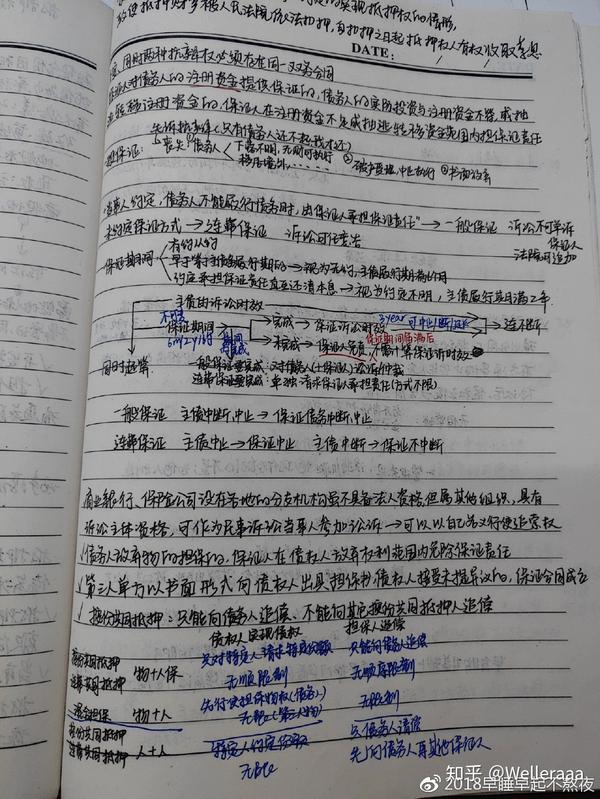 致使抵押财产被人民法院依法扣押,自扣押之日起抵押权人有权收取孳息
DATE:
同时两种抗辩权必须存在同一双务合同
对债务人的注册资金提供保证的,债务人的实际投资与注册资金不符,或抽
逃转移注册资金的,保证人在注册资金不足或抽逃转移资金范围内担保证责任
先诉抗辩权(只有债务人还不起我才还)
担保证:
丧失①债务人 下落不明,无财可执行
移居境外…… ②破产受理,中止执行 ③书面放弃
当事人约定,债务人不能履行债务时,由保证人承担保证责任"→一般保证 诉讼不可单诉保证人
法院可追加
未约定保证方式→连带保证 诉讼可任意告
保证期间
有约从约
早于等于主债务履行期的→视为无约,主债履行期满6个月
约定承担保证责任直至还清本息→视为约定不明,主债履行期满二年
主债的诉讼时效
不明
保证期间 期间 完成→保证诉讼时效 3 year 可中止/断/延 → 连不断
6m/2y/约 未完成→保证人免责 保证期间届满后
同时起算
一般保证要完成:对债务人(+保证人)诉讼/仲裁
连带保证要完成:单独请求保证人承担责任(方式不限)
一般保证 主债中断,中止→保证债务中断,中止
连带保证 主债中止→保证中止 主债中断→保证不中断
商业银行、保险公司设在各地的分支机构虽不具备法人资格,但属其他组织,具有
诉讼主体资格,可作为民事诉讼当事人参加诉讼→可以以自己名义行使追索权
√债务人放弃物的担保的,保证人在债权人放弃权利范围内免除保证责任
√第三人单方以书面形式向债权人出具担保书,债权人接受未提异议的,保证合同成立
√按份共同抵押:只能向债务人追偿、不能向其它按份共同抵押人追偿
债权人实现债权 担保人追偿
按份共同抵押 物+人保 只对特定人请求特定份额 只能向债务人追偿
连带共同抵押 无顺序限制 无顺序限制
混合担保 物+人 先行使担保物权(债务人) 无限制
无限制(第三人物)
按份共同抵押 人+人 特定人约定份额 只债务人追偿
连带共同抵押 无限制 先向债务人再其他保证人
知乎 @Welleraaa
@2018早睡早起不熬夜